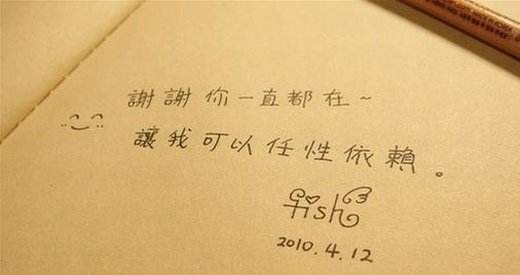 謝謝你一直都在~
讓我可以任性依賴。
fish
2010.4.12